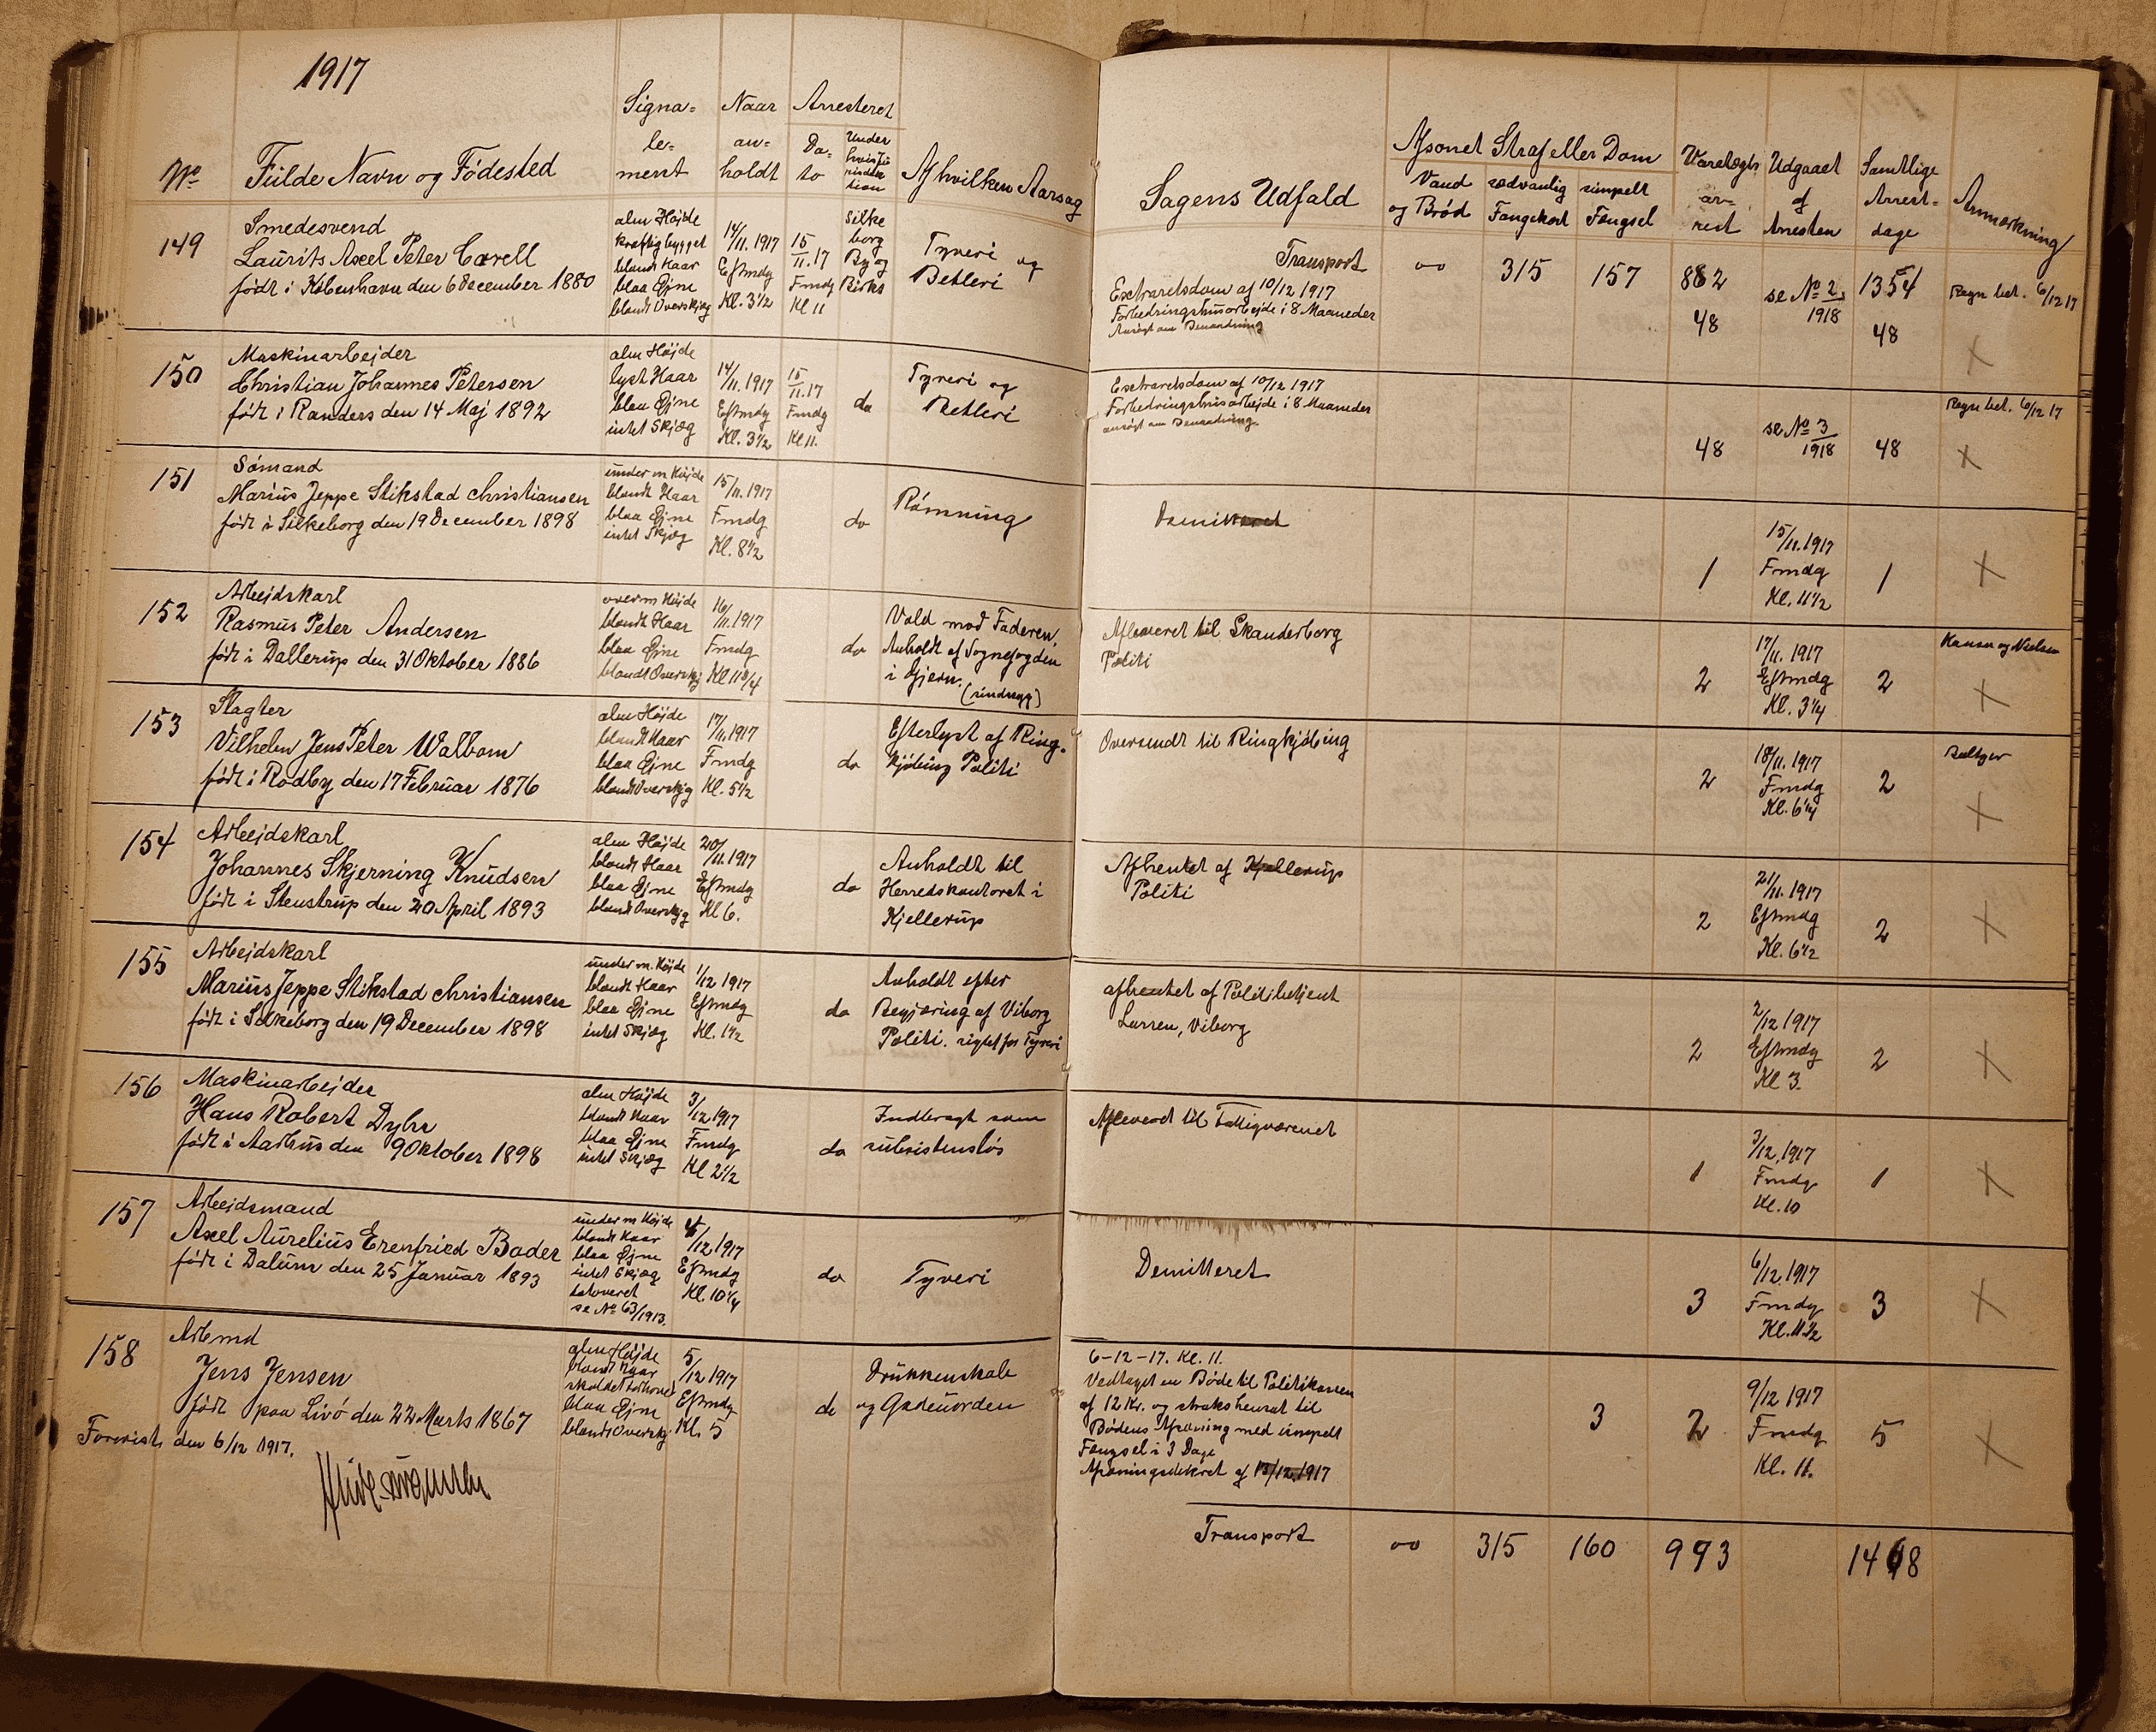 1917
No Fulde Navn og Fødested
Signa=
le=
ment
Naar
an=
holdt
Arresteret
Da=
to
Under
hvis Ju
risdik
tion
Af hvilken Aarsag
149
Smedesvend
Laurits Axel Peter Carell
født i København den 6 December 1880
alm Højde
kraftig bygget
blondt Haar
blaa Øjne
blondt Overskjæg
14/11.1917
Eftmdg
Kl. 3 1/2
15
11.17
Fmdg
Kl 11
Silke
borg
By og
Birks
Tyveri og
Betleri
150
Maskinarbejder
Christian Johannes Petersen
født i Randers den 14 Maj 1892
alm Højde
lyst Haar
blaa Øjne
intet Skjæg
14/11.1917
Eftmdg
Kl. 3 1/2
15
11.17
Fmdg
Kl 11.
do
Tyveri og
Betleri
151
Sømand
Marius Jeppe Stikstad Christiansen
født i Silkeborg den 19 December 1898
under m Højde
blondt Haar
blaa Øjne
intet Skjæg
15/11.1917
Fmdg
Kl. 8 1/2
do
Rømning
152
Arbejdskarl
Rasmus Peter Andersen
født i Dallerup den 31 Oktober 1886
over m Højde
blondt Haar
blaa Øjne
blondt Overskj
16/11.1917
Fmdg
Kl 11 3/4
do
Vold mod Faderen,
Anholdt af Sognefogden
i Gjern.
153
Slagter
Vilhelm Jens Peter Walbom
født i Rødby den 17 Februar 1876
alm Højde
blondt Haar
blaa Øjne
blondt Overskjg
17/11.1917
Fmdg
Kl. 5 1/2
do
Efterlyst af Ring-
kjøbing Politi
154
Arbejdskarl
Johannes Skjerning Knudsen
født i Stenstrup den 20 April 1893
alm Højde
blondt Haar
blaa Øjne
blondt Overskjg
20/11.1917
Eftmdg
Kl 6.
do
Anholdt til
Herredskontoret i
Kjellerup
155
Arbejdskarl
Marius Jeppe Stikstad Christiansen
født i Silkeborg den 19 December 1898
under m. Højde
blondt Haar
blaa Øjne
intet Skjæg
1/12 1917
Eftmdg
Kl. 1 1/2
do
Anholdt efter
Begjæring af Viborg
Politi. sigtet for Tyveri
156
Maskinarbejder
Hans Robert Dyhr
født i Aarhus den 9 Oktober 1898
alm Højde
blondt Haar
blaa Øjne
intet Skjæg
3/12.1917
Fmdg
Kl 2 1/2
do
Indbragt som
subsistensløs
157
Arbejdsmand
Axel Aurelius Erenfried Bader
født i Dalum den 25 Januar 1893
under m Højde
blondt Haar
blaa Øjne
intet Skjæg
tatoveret
se No 63/1913.
4/12.1917
Eftmdg
Kl. 10 1/4
do
Tyveri
158
Arbmd
Jens Jensen
født paa Livø den 22 Marts 1867
alm Højde
blondt Haar
skaldet Forhoved
blaa Øjne
blondt Overskj
5/12 1917
Eftmdg
Kl. 5
do
Drukkenskab
og Gadeuorden
Forevist den 6/12 1917.
Sagens Udfald
Afsonet Straf eller Dom
Vand
og Brød
sædvanlig
Fangekost
simpelt
Fængsel
Varetægts
ar=
rest
Udgaaet
af
Arresten
Samtlige
Arrest=
dage
Anmærkning
Transport 00 315 157 882 1354
Extraretsdom af 10/12 1917
Forbedringshusarbejde i 8 Maaneder
Ansøgt om Benaadning
48
se No 2
1918
48
Regn bet. 6/12 17
X
Extraretsdom af 10/12 1917
Forbedringshusarbejde i 8 Maaneder
ansøgt om Benaadning
48
se No 3
1918
48
Regn bet. 6/12 17
X
Demitteret
1
15/11.1917
Fmdg
Kl. 11 1/2
1
X
Afleveret til Skanderborg
Politi
2
17/11.1917
Eftmdg
Kl. 3 1/4
2
Hansen og Nielsen
X
Oversendt til Ringkjøbing
2
18/11.1917
Fmdg
Kl. 6 1/4
2
X
Afhentet af Kjellerup
Politi
2
21/11.1917
Eftmdg
Kl. 6 1/2
2
X
afhentet af Politibetjent
Larsen, Viborg
2
2/12 1917
Eftmdg
Kl 3.
2
X
Afleveret til Fattigvæsenet
1
3/12.1917
Fmdg
Kl. 10
1
X
Demitteret
3
6/12.1917
Fmdg
Kl. 11 1/2
3
X
6-12-17. Kl. 11.
Vedtaget en Bøde til Politikassen
af 12 Kr. og straks hensat til
Bødens Afsoning med simpelt
Fængsel i 3 Dage
Afsoningsdekret af 13/12.1917
3
2
9/12 1917
Fmdg
Kl. 11.
5
X
Transport 00 315 160 993 1468